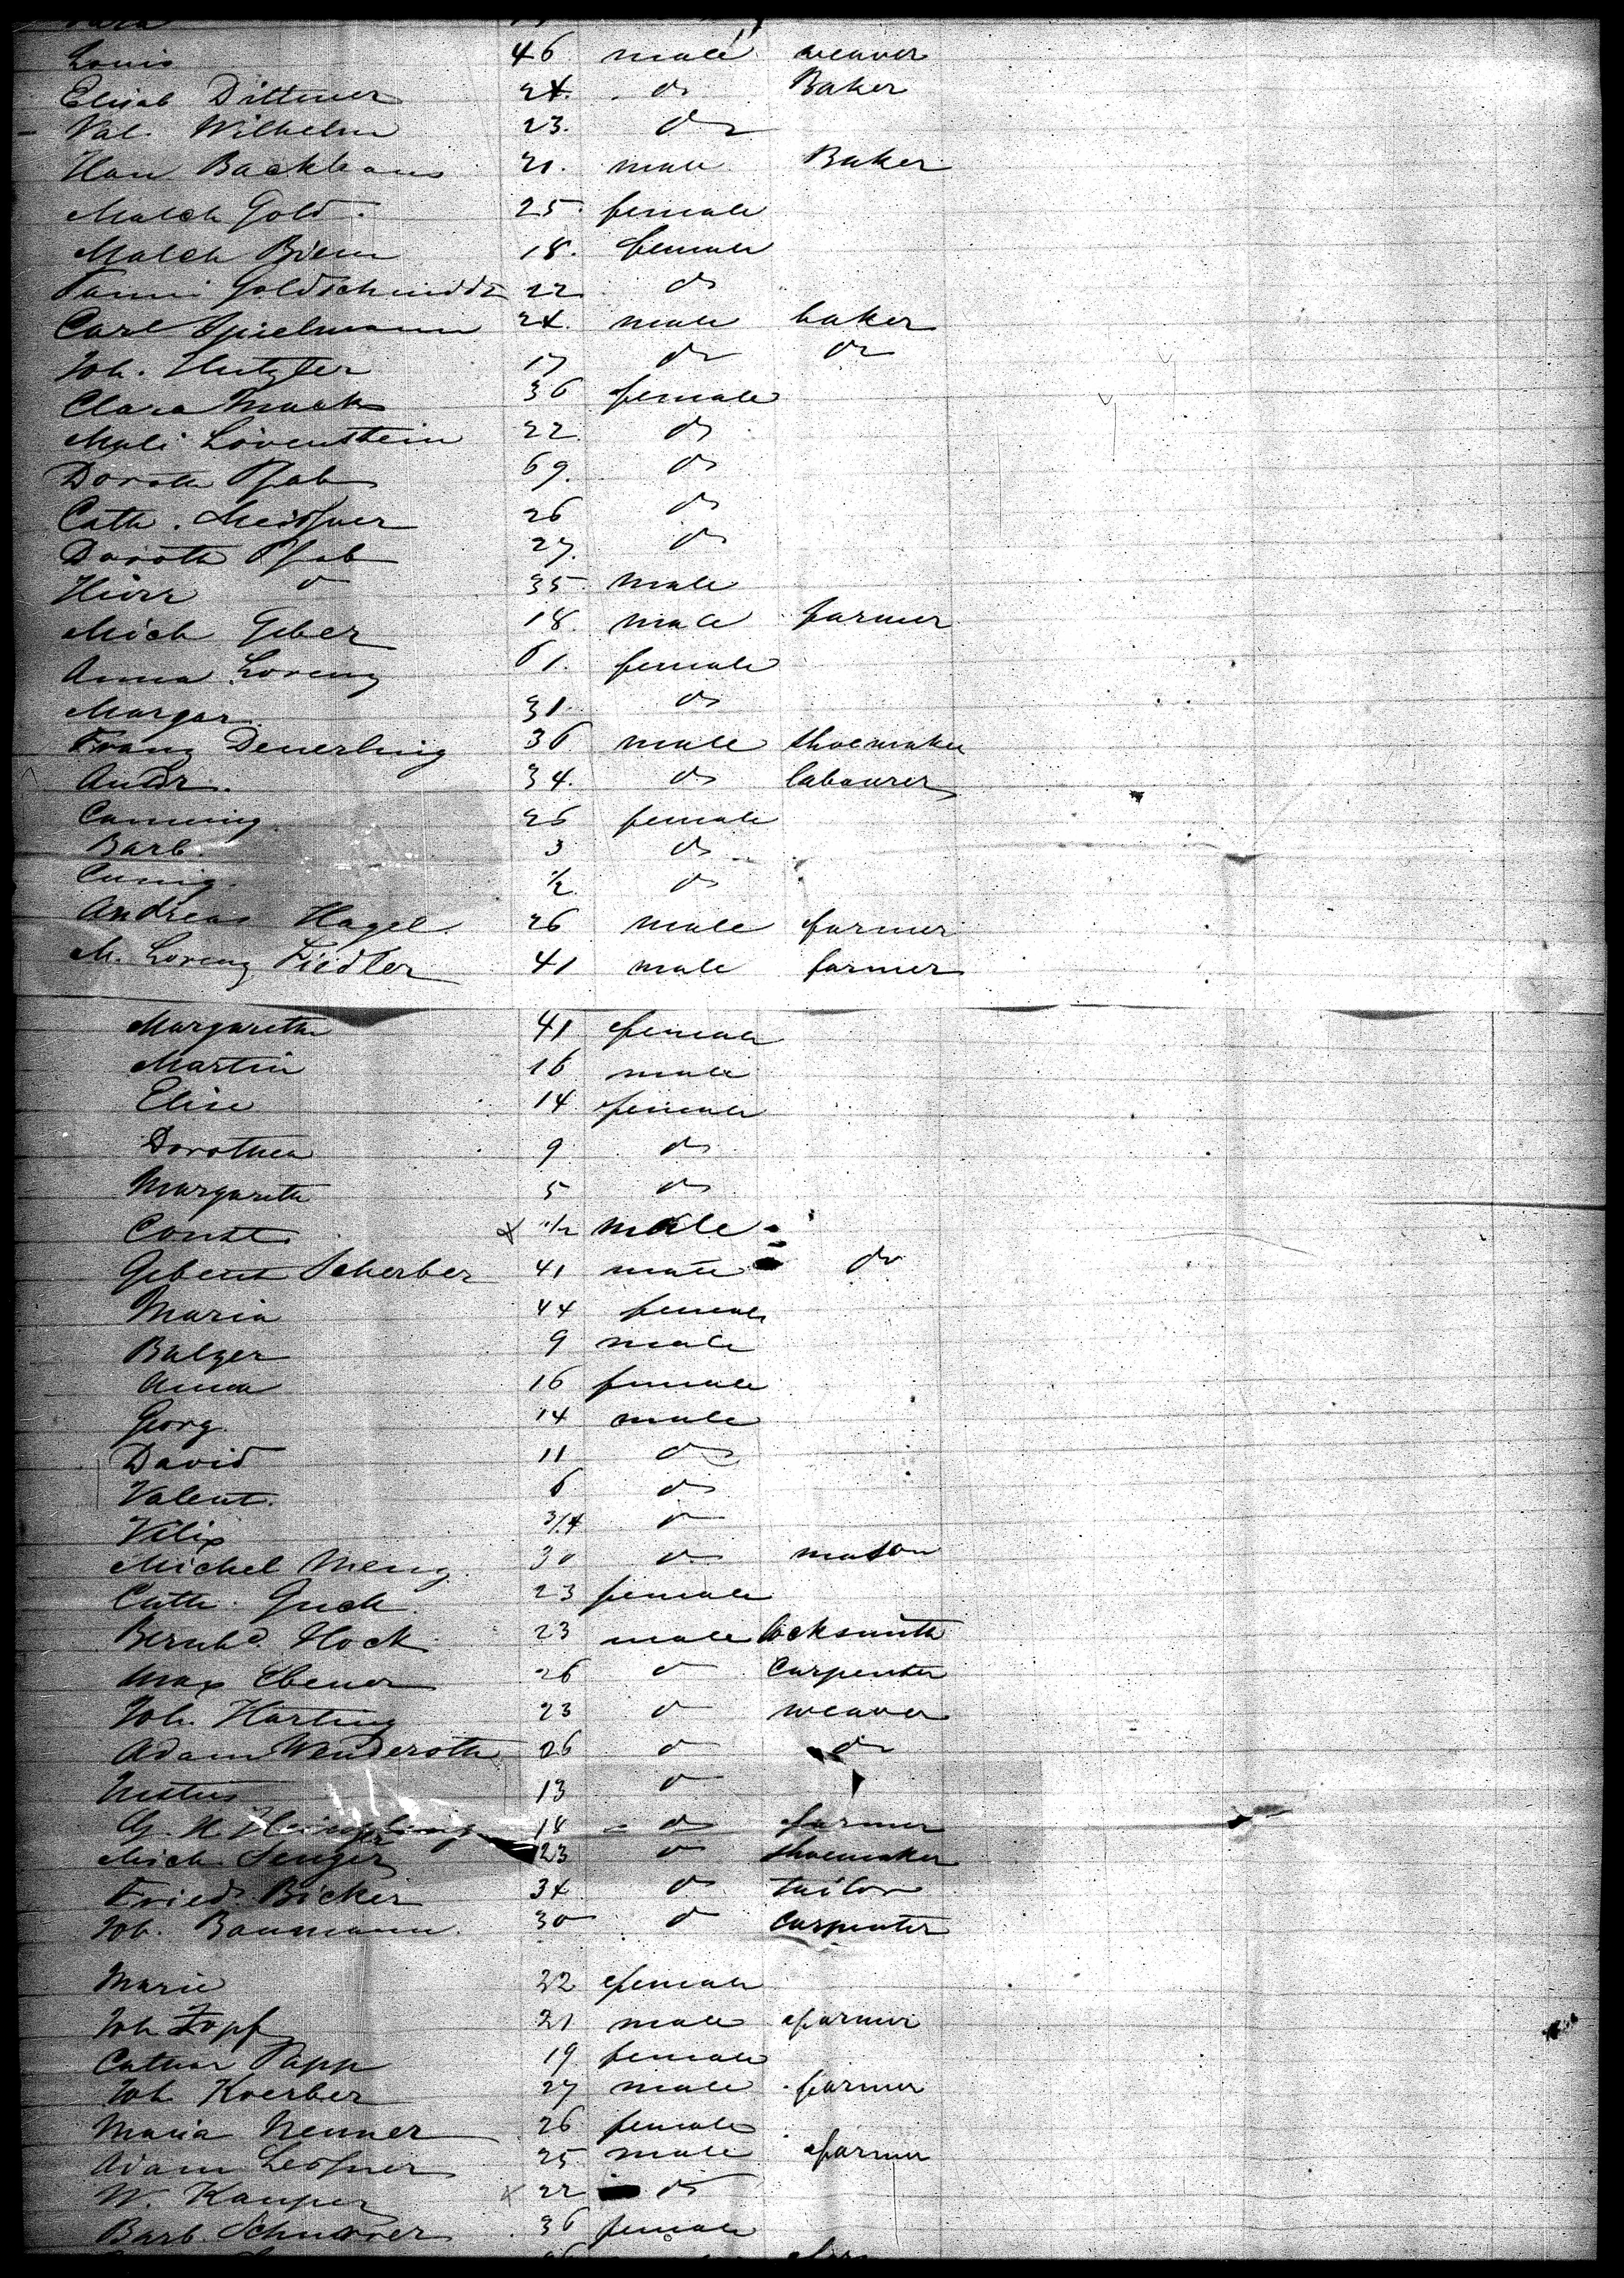 Louis 46 male weaver
Elisab Dittmer 24. do Baker
Val. Wilhelm 23. do
Han Backhaus 21. male Baker
Malch Gold. 25. female
Malch Biem 18. female
Fanni Goldschmidt 22 do
Carl Spielmann 24. male baker
Joh. Hutzler 17 do do
Clara Mack 36 female
Mali Lövenstein 22. do
Doroth Pfab 69. do
Cath. Meissner 26 do
Doroth Pfab 27. do
Hier do 35 male
Mich Geber 18. male farmer
Anna Lorenz 61. female
Margar. 31. do
Franz Deuerling 36 male shoemaker
Andr. 34. do labourer
Cunning. 26 female
Barb. 3 do
Cunig. 1/2 do
Andreas Hagel 26 male farmer
M. Lorenz Fiedler 41 male farmer
Margareth 41 female
Martin 16 male
Elise 14 female
Dorothea 9 do
Margareth 5 do
Const. male
Gebent Scherber 41 male do
Maria 44 female
Balzer 9 male
Anna 16 female
Georg. 14 male
David 11 do
Valent. 6 do
Velix 3/4 do
Michel Meng. 30 do mason
Cath. Guck. 23 female
Bernhd. Hock 23 male locksmith
Max Ebener 26 do Carpenter
Joh. Harting 23 do weaver
Adam Wenderoth 26 do do
Justus 13 do
G. H. 18 do farmer
Mich. Senger 23 do shoemaker
Fried. Bicker 34 do tailor
Joh. Baumann. 30 do Carpenter
Marie 22 female
Joh Zopf 21 male farmer
Cathar Papp 19 female
Joh Koerber 27 male farmer
Maria Nenner 26 female
Adam Lessner 25 male farmer
W. Kauper 22 do
Barb. Schnorrer 36 female